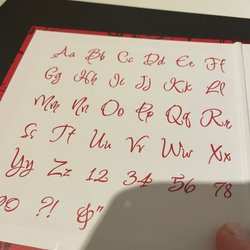 Aa Bb Cc Dd Ee Ff
Gg Hh Ii Jj Kk Ll
Mm Nn Oo Pp Qq Rr
Ss Tt Uu Vv Ww Xx
Yy Zz 12 34 56 78
90 ?! &"